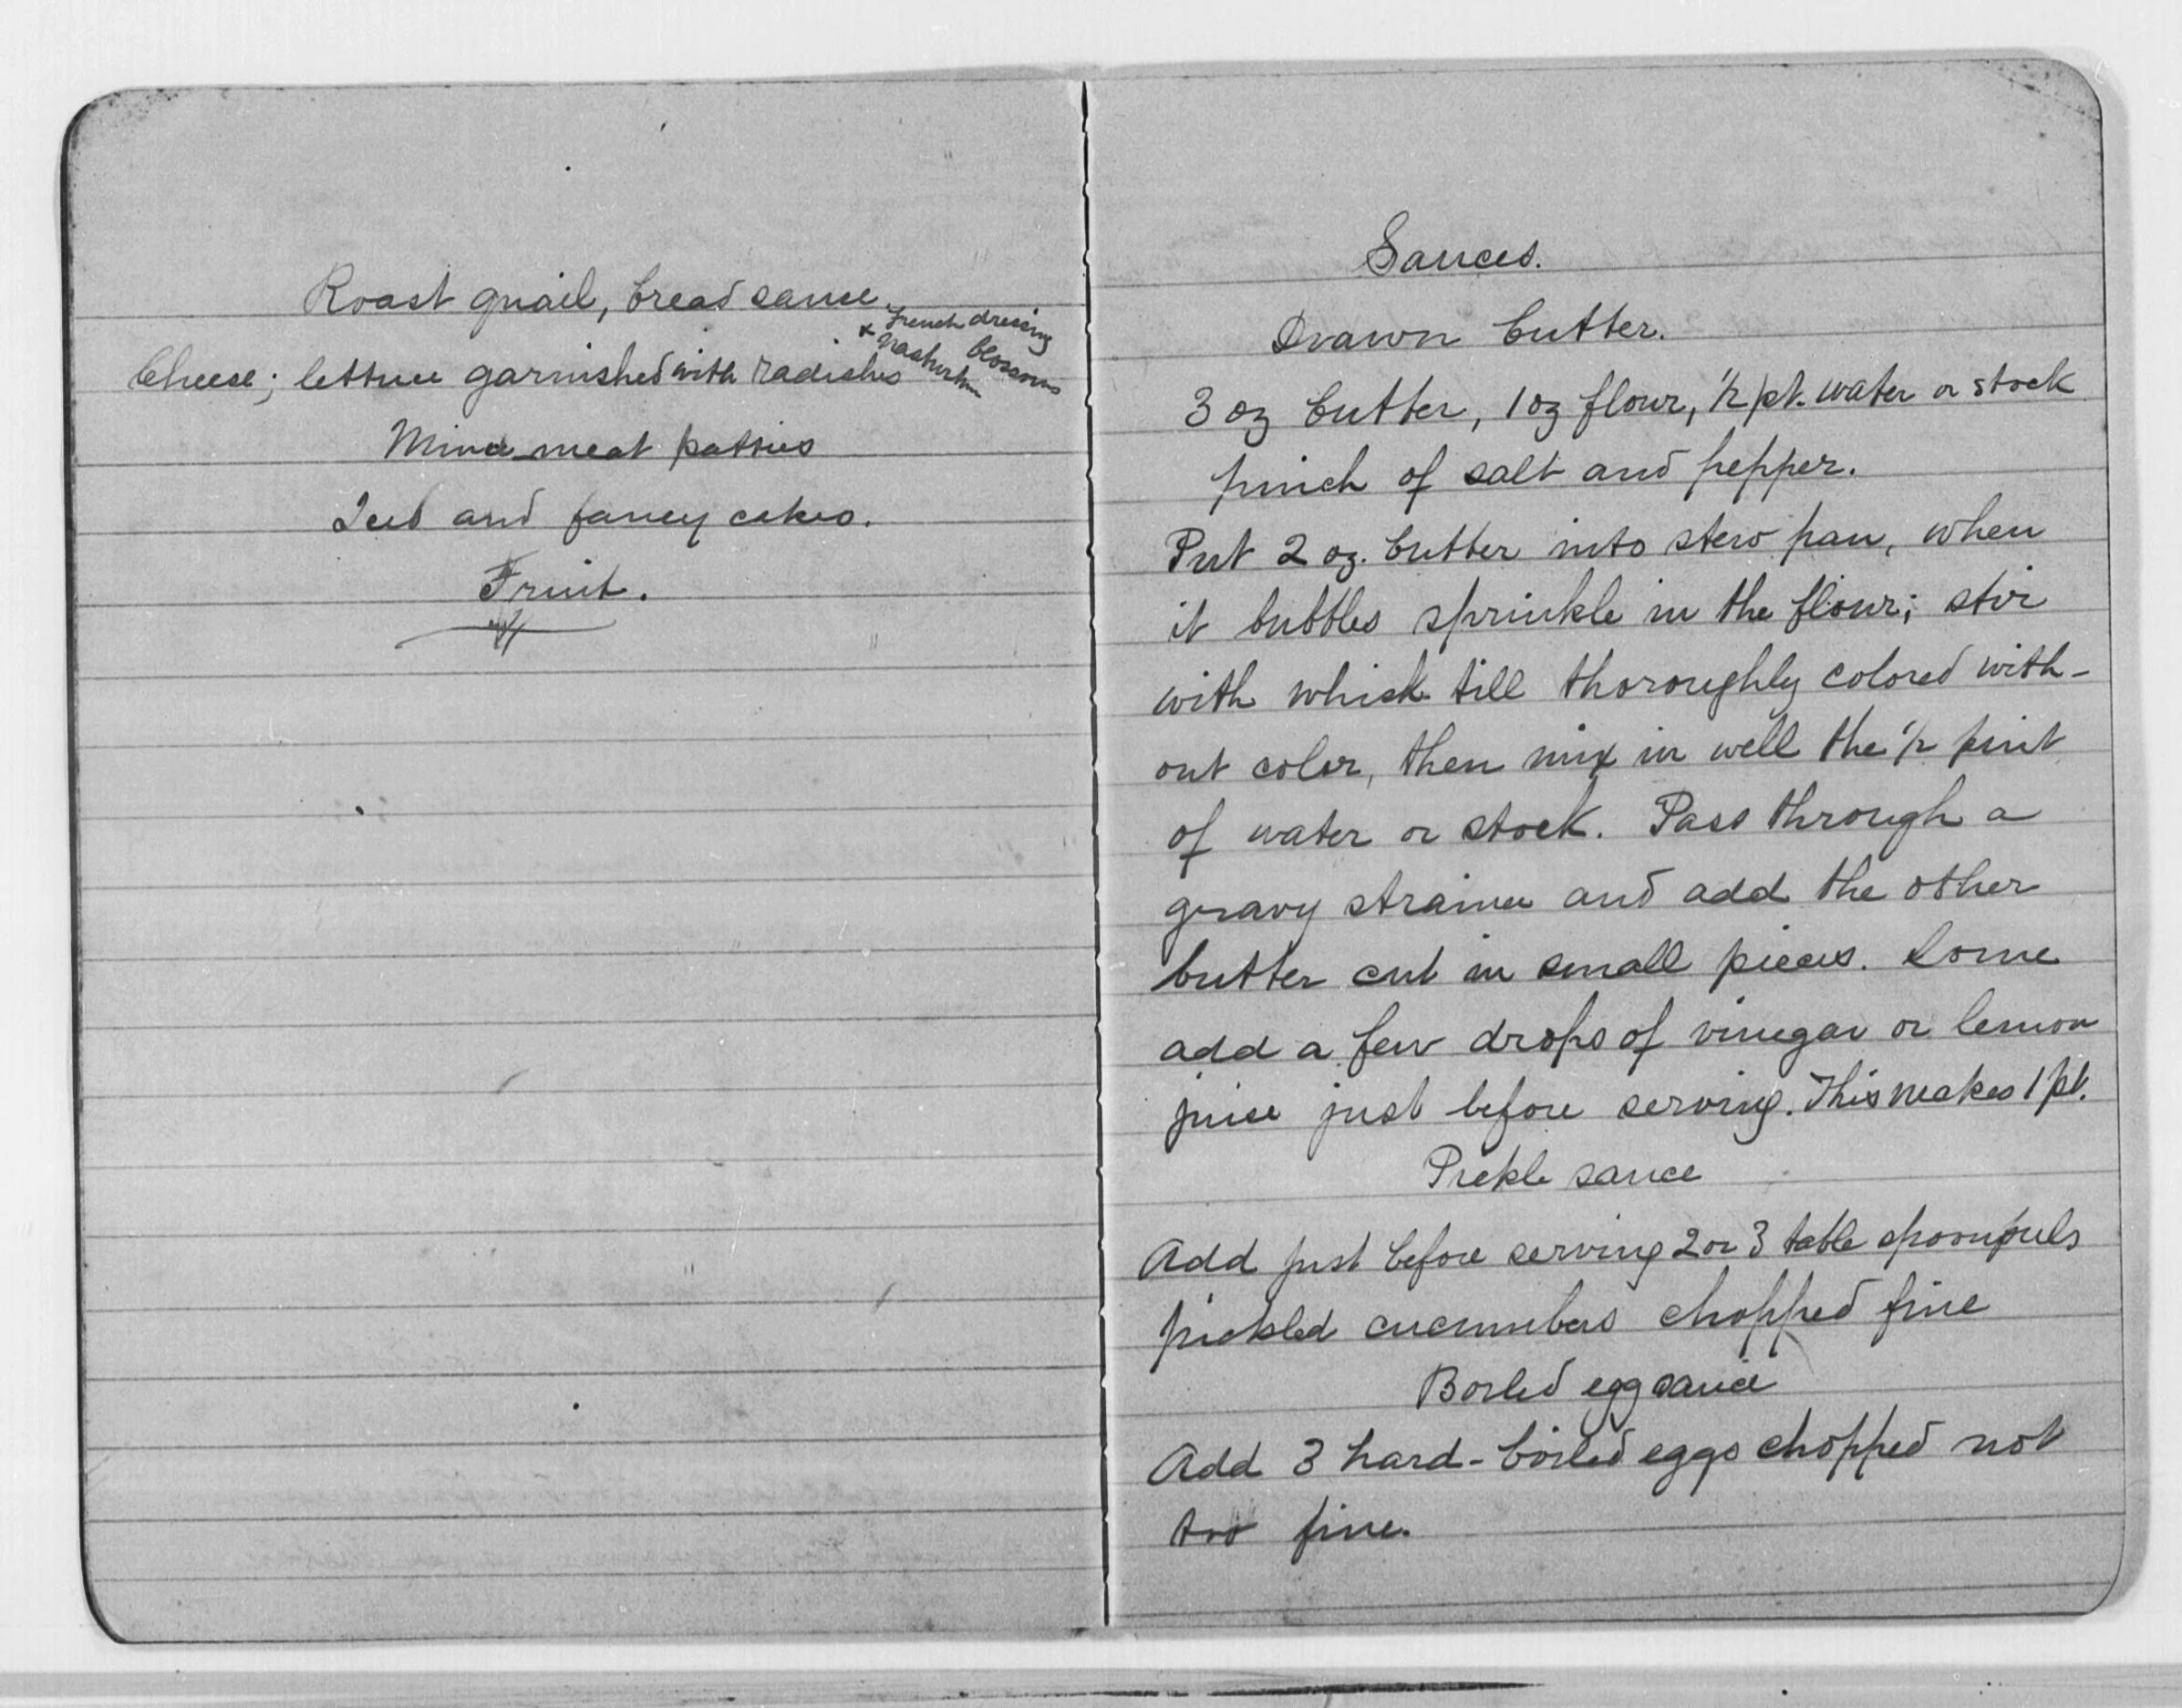 Roast quail, bread sauce.
French dressing
& nasturtium blossoms
Cheese; lettuce garnished with radishes
Mince meat patties
Iced and fancy cakes.
Fruit.
Sauces.
Drawn butter.
3 oz butter, 1 oz flour, 1/2 pt. water or stock
pinch of salt and pepper.
Put 2 oz. butter into stew pan, when
it bubbles sprinkle in the flour; stir
with whisk till thoroughly colored with-
out color, then mix in well the 1/2 pint
of water or stock. Pass through a
gravy strainer and add the other
butter cut in small pieces. Some
add a few drops of vinegar or lemon
juice just before serving. This makes 1 pt.
Pickle sauce
Add just before serving 2 or 3 table spoonfuls
pickled cucumbers chopped fine
Boiled egg sauce
Add 3 hard-boiled eggs chopped not
too fine.